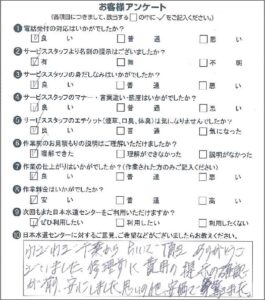 お客様アンケート
(各項目につきまして、該当する□の中に✓をご記入ください。)
❶電話受付の対応はいかがでしたか?
良い 普通 悪い
❷サービススタッフより名刺の提示はございましたか?
有 無 不明
❸サービススタッフの身だしなみはいかがでしたか?
良い 普通 悪い
❹サービススタッフのマナー・言葉遣い・態度はいかがでしたか?
良い 普通 悪い
❺サービススタッフのエチケット(煙草、口臭、体臭)は気になりませんでしたか?
良い 普通 気になった
❻作業前のお見積もりの説明はご理解いただけましたか?
理解できた 理解ができなかった 説明がなかった
❼作業の仕上がりはいかがでしたか?(作業された方のみご記入ください)
良い 普通 悪い
❽作業料金はいかがでしたか?
安い 普通 高い
❾次回もまた日本水道センターをご利用いただけますか?
ぜひ利用したい 利用したい 利用したくない
❿日本水道センターに対するご意見、ご希望などがございましたらお教えください。
作業から
ありがとうご
ざいました。修理前に費用の提示の確認